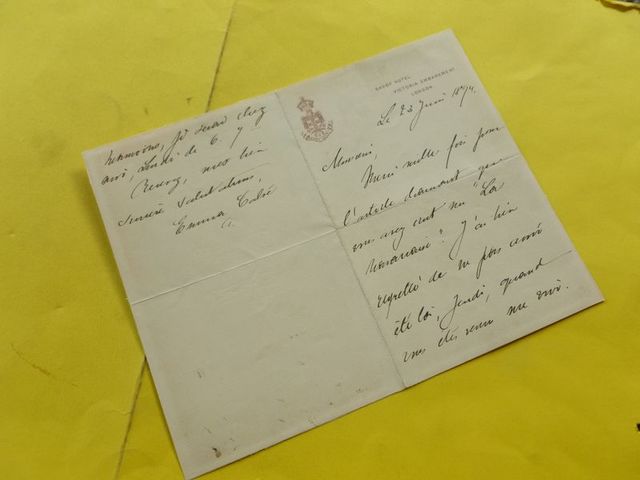 SAVOY HOTEL
VICTORIA EMBANKMENT
LONDON
Le 23 Juin 1894.
Monsieur,
Merci mille fois pour
l'article charmant que
vous avez écrit sur "La
Navarraise". J'ai bien
regretté de ne pas avoir
été là, Jeudi, quand
vous êtes venu me voir.
Néanmoins, je serai chez
moi, Lundi de 6 à 7
Recevez, mes bien
sincères salutations,
Emma Calvé